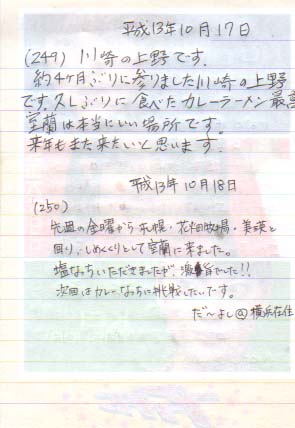 平成13年10月17日
(249) 川崎の上野です。
約4ヶ月ぶりに参りました川崎の上野
です。久しぶりに食べたカレーラーメン最高
室蘭は本当にいい場所です。
来年もまた来たいと思います。
平成13年10月18日
(250)
先週の金曜から札幌・花畑牧場・美瑛と
回り、しめくくりとして室蘭に来ました。
塩なっちいただきましたが激旨でした!!
次回はカレーなっちに挑戦したいです。
だ〜よし@横浜在住